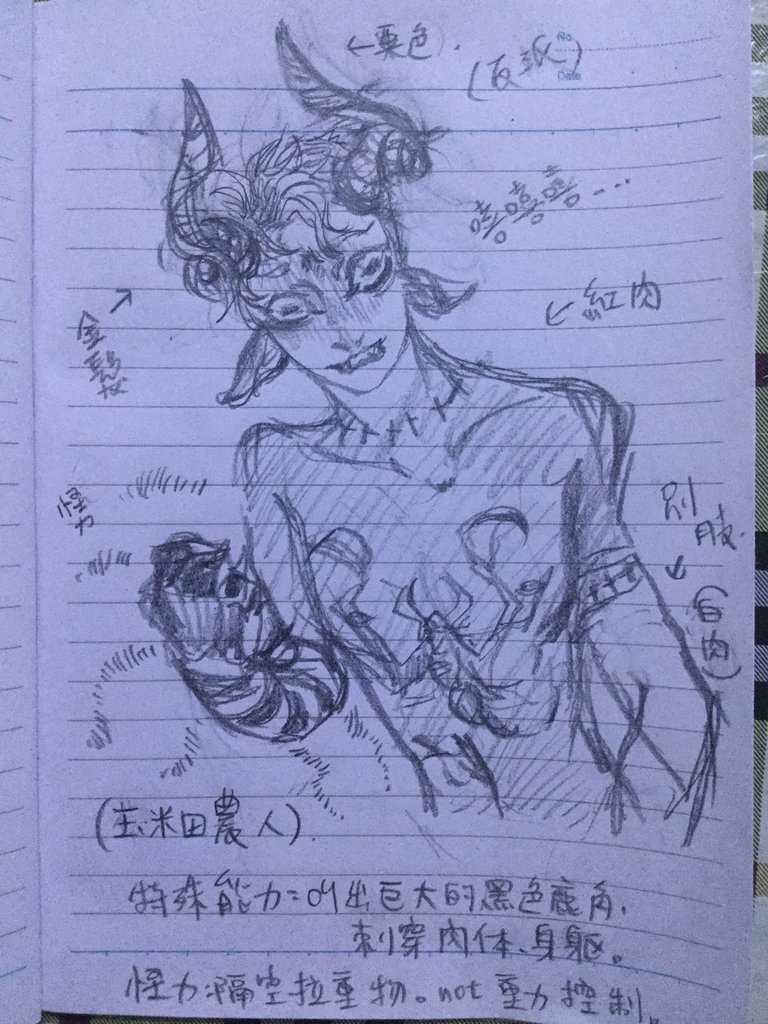 ←栗色.
(反派)
No.
Date
嘻嘻嘻...
←紅肉
→
金髮
怪力
別肢
↓
(白肉)
(玉米田農人).
特殊能力:叫出巨大的黑色鹿角,
刺穿肉体、身軀。
怪力:隔空拉重物。not 重力控制。